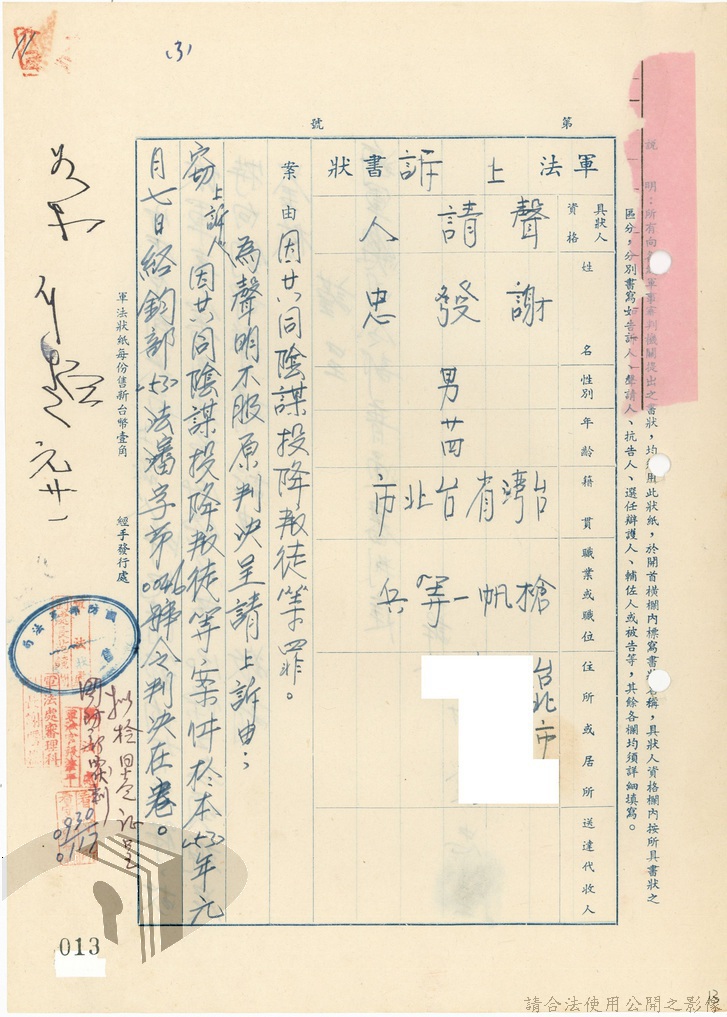 (3)
第 號
說 明：所有向各級軍事審判機關提出之書狀，均須用此狀紙，於開首橫欄內標寫書狀名稱，具狀人資格欄內按所具書狀之
區分，分別書寫如告訴人、聲請人、抗告人、選任辯護人、輔佐人或被告等，其餘各欄均須詳細填寫。
軍法上訴書狀
具狀人資格 姓名 性別 年齡 籍貫 職業或職位 住所或居所 送達代收人
聲請人 謝發忠 男 廿四 台灣省台北市 槍帆一等兵 台北市
案由 因共同陰謀投降叛徒等罪。
為聲明不服原判決呈請上訴由；
竊上訴人因共同陰謀投降叛徒等案件於本(53)年元
月七日經鈞部(53)法審字第0046號令判決在卷。
軍法狀紙每份售新台幣壹角
經手發行處
元廿一
軍法處審理科
0930
0117
013
13
請合法使用公開之影像